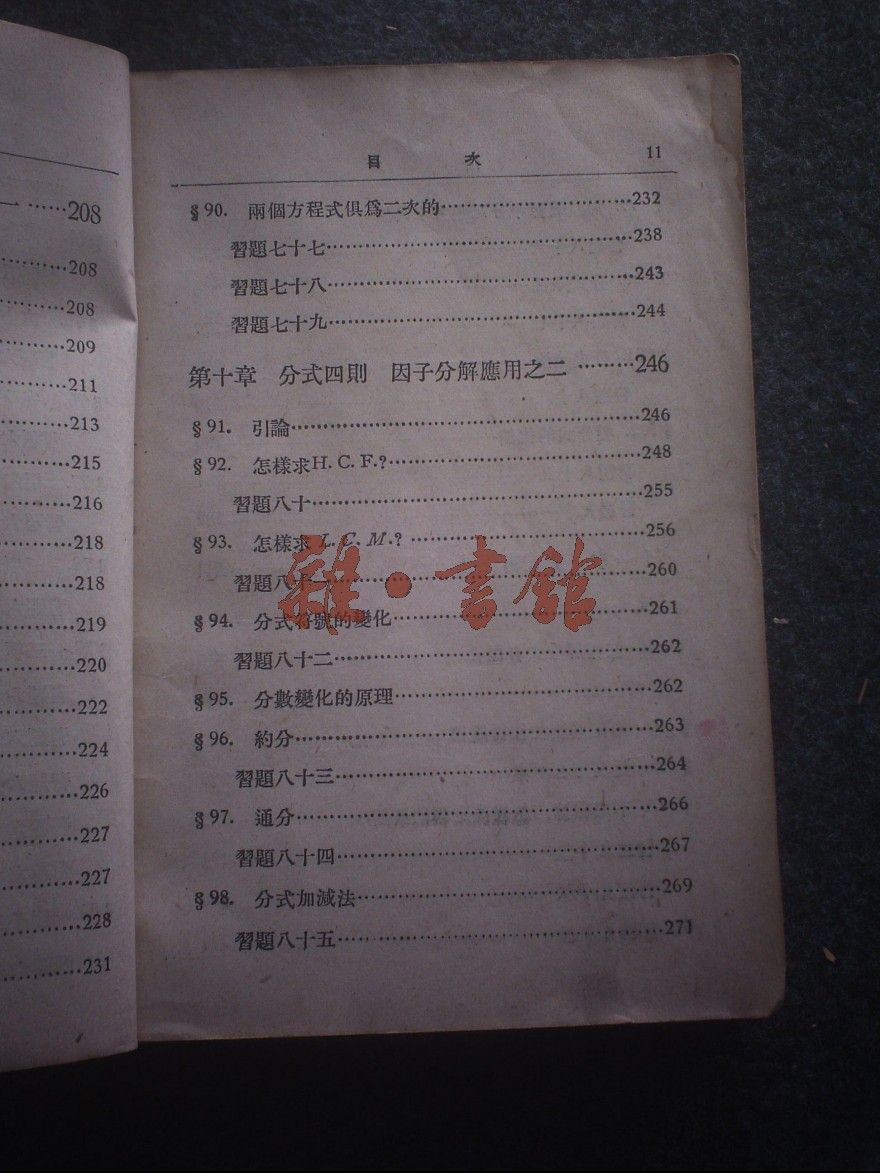 一……208
……208
……208
……209
……211
……213
……215
……216
……218
……218
……219
……220
……222
……224
……226
……227
……227
……228
……231
目 次 11
§90. 兩個方程式俱爲二次的……232
習題七十七……238
習題七十八……243
習題七十九……244
第十章 分式四則 因子分解應用之二……246
§91. 引論……246
§92. 怎樣求H. C. F.?……248
習題八十……255
§93. 怎樣求 L. C. M.?……256
習題八十一……260
§94. 分式符號的變化……261
習題八十二……262
§95. 分數變化的原理……262
§96. 約分……263
習題八十三……264
§97. 通分……266
習題八十四……267
§98. 分式加減法……269
習題八十五……271
雜·書館